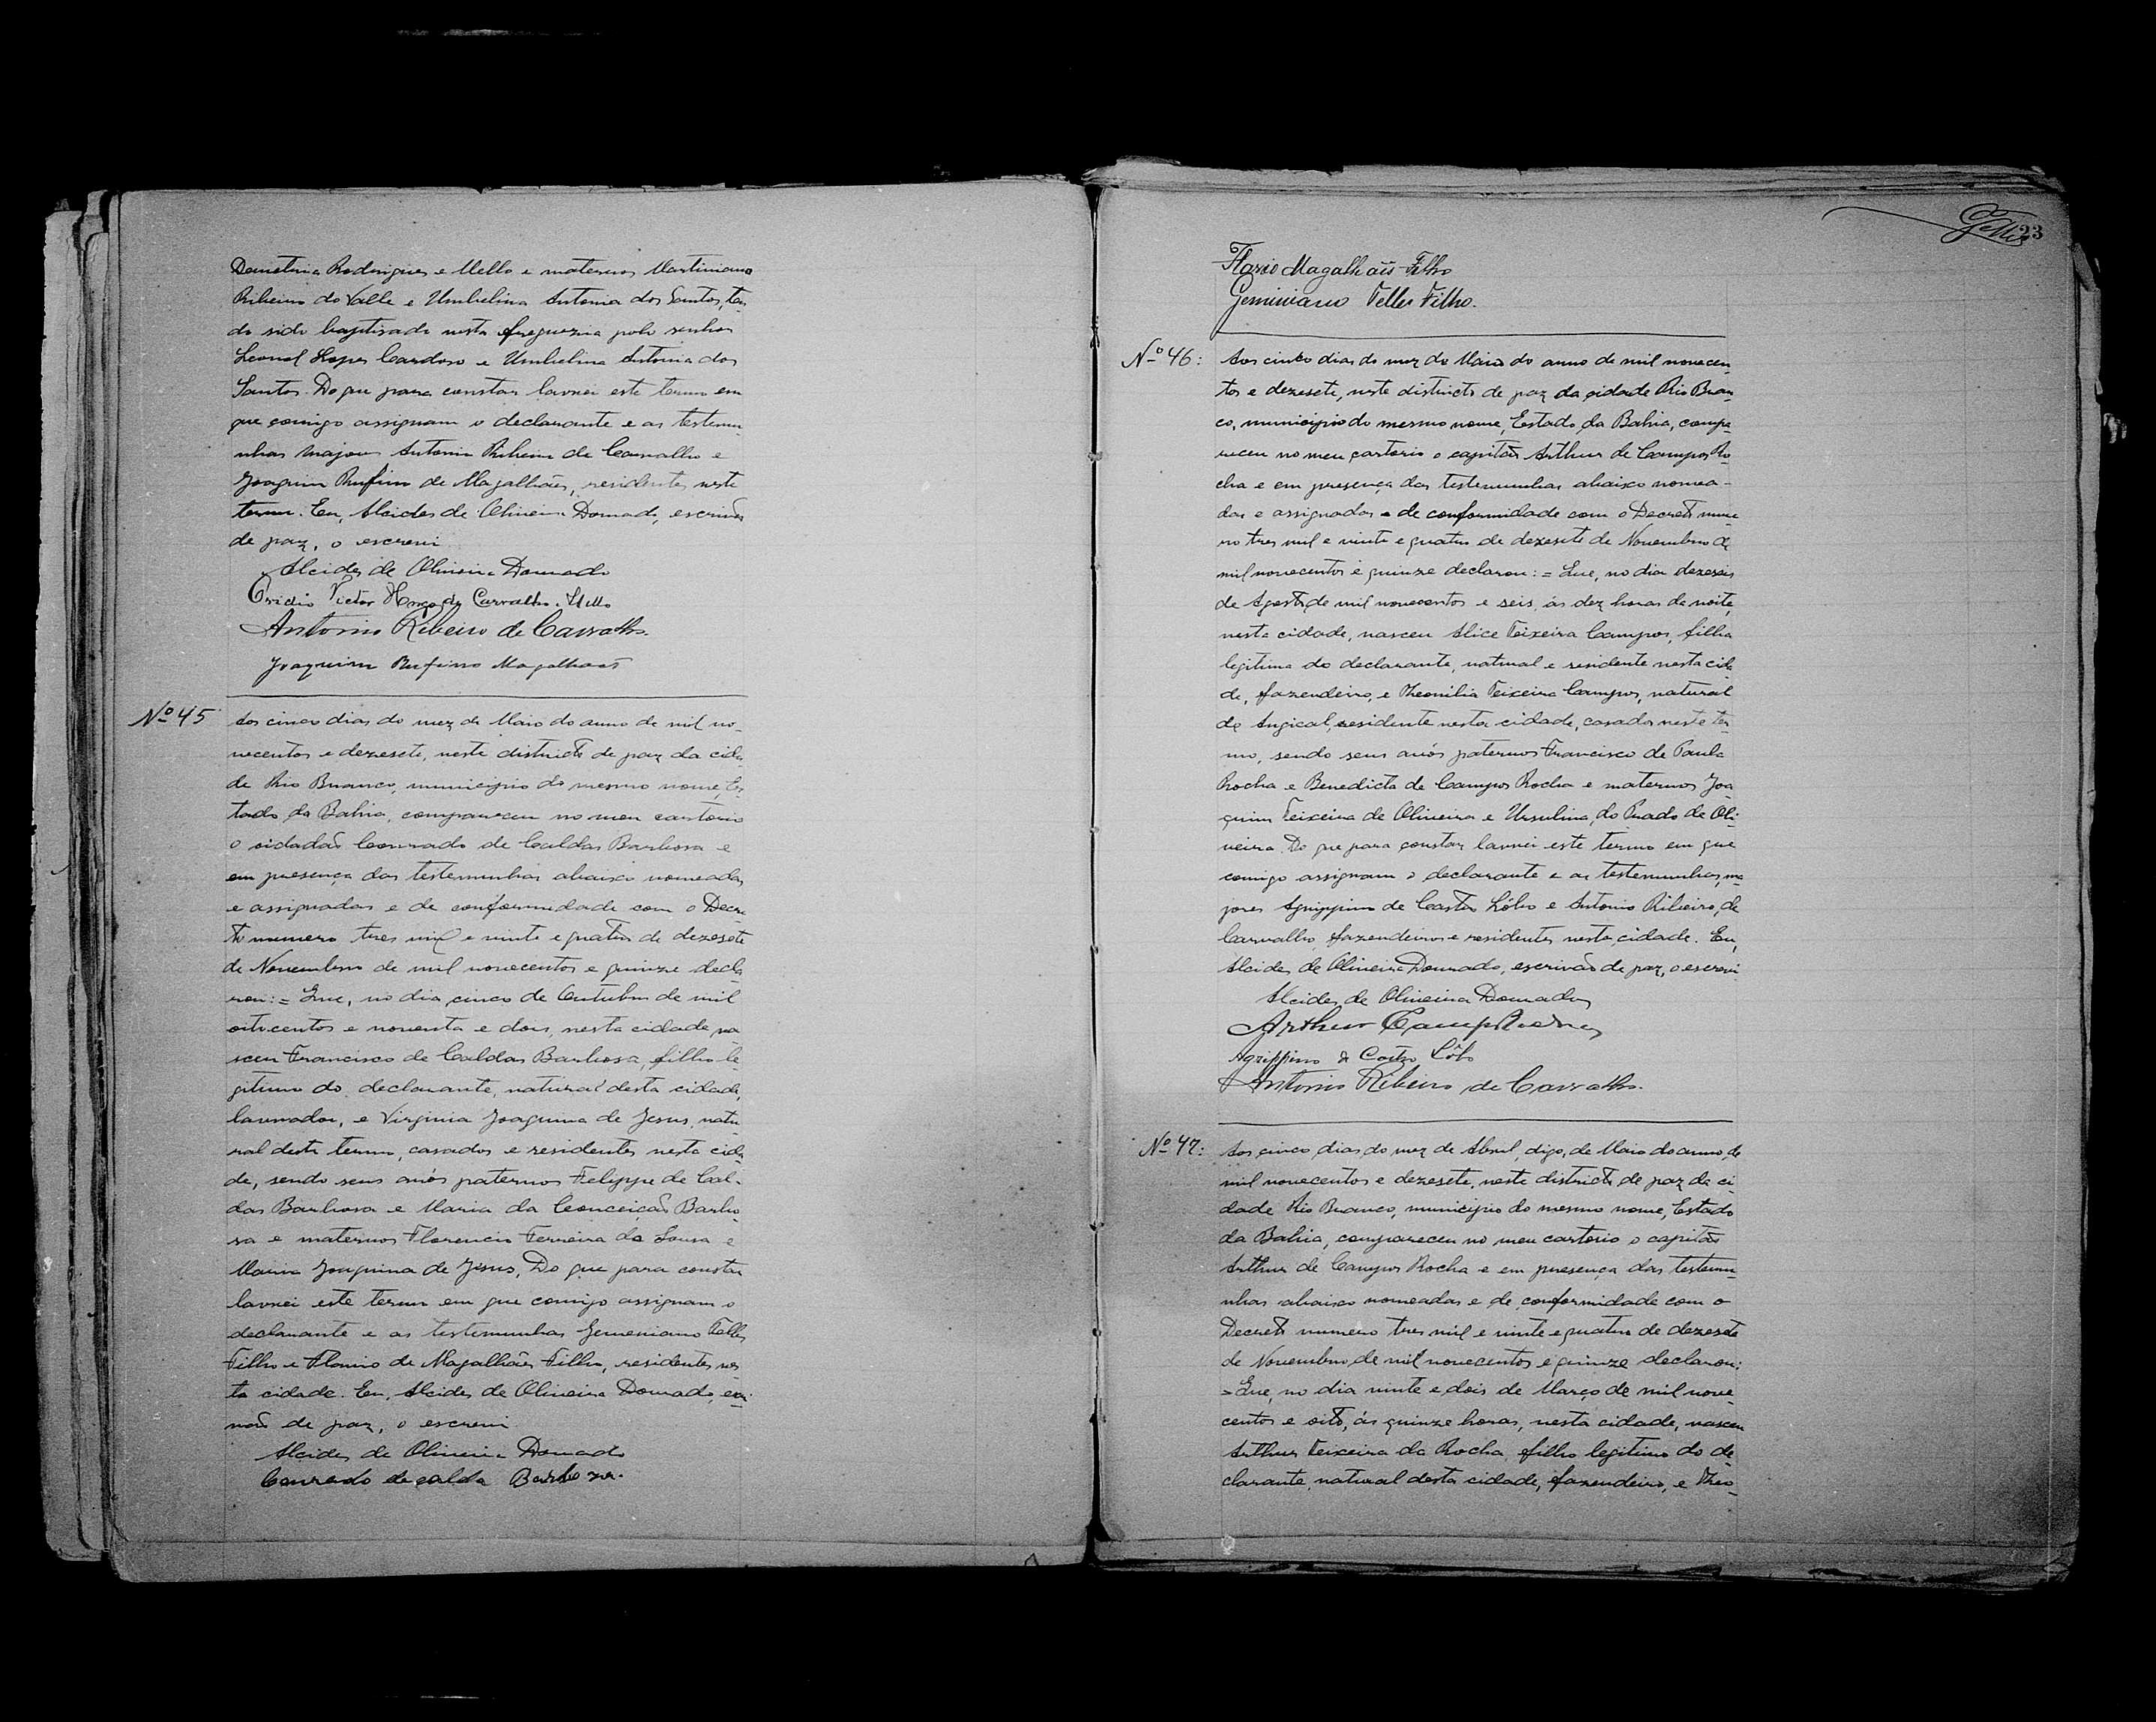 Demetria Rodrigues e Mello e maternos Martiniano
Ribeiro do Valle e Umbelina Antonia dos Santos, ten
do sido baptisada nesta freguezia pelo senhor
Leonel Lopes Cardoso e Umbelina Antonia dos
Santos. Do que para constar lavrei este termo em
que comigo assignam o declarante e as testemu
nhas major Antonio Ribeiro de Carvalho e
Joaquim Rufino de Magalhães, residentes neste
termo. Eu, Alcides de Oliveira Dourado, escrivão
de paz, o escrevi
Alcides de Oliveira Dourado
Ovidio Victor Hugo de Carvalho Mello
Antonio Ribeiro de Carvalho.
Joaquim Rufino Magalhães
Nº 45
Aos cinco dias do mez de Maio do anno de mil no-
vecentos e dezesete, neste districto de paz da cida
de Rio Branco, municipio do mesmo nome, Es-
tado da Bahia, compareceu no meu cartorio
o cidadão Conrado de Caldas Barbosa e
em presença das testemunhas abaixo nomeadas
e assignadas e de conformidade com o Decre
to numero tres mil e vinte e quatro de dezesete
de Novembro de mil novecentos e quinze decla
rou: = Que, no dia cinco de Outubro de mil
oitocentos e noventa e dois, nesta cidade na
sceu Francisco de Caldas Barbosa, filho le
gitimo do declarante, natural desta cidade,
lavrador, e Virginia Joaquina de Jesus, natu
ral deste termo, casados e residentes nesta cida
de, sendo seus avós paternos Felippe de Cal-
das Barbosa e Maria da Conceição Barbo
sa e maternos Florencio Ferreira da Sousa e
Maria Joaquina de Jesus. Do que para constar
lavrei este termo em que comigo assignam o
declarante e as testemunhas Gemeniano Telles
Filho e Flavio de Magalhães Filho, residentes nes
ta cidade. Eu, Alcides de Oliveira Dourado, escri-
vão de paz, o escrevi
Alcides de Oliveira Dourado
Conrado de calda Barbosa.
23
Flavio Magalhães Filho
Geminiano Telles Filho.
Nº 46:
Aos cinco dias do mez de Maio do anno de mil novecen
tos e dezesete, neste districto de paz da cidade Rio Bran
co, municipio do mesmo nome, Estado da Bahia, compa
receu no meu cartorio o capitão Arthur de Campos Ro
cha e em presença das testemunhas abaixo nomea-
das e assignadas e de conformidade com o Decreto nume
ro tres mil e vinte e quatro de dezesete de Novembro de
mil novecentos e quinze declarou: = Que, no dia dezeseis
de Agosto de mil novecentos e seis, ás dez horas da noite,
nesta cidade, nasceu Alice Teixeira Campos, filha
legitima do declarante, natural e residente nesta cida
de, fazendeiro, e Theonilia Teixeira Campos, natural
de Angical, residente nesta cidade, casados neste ter
mo, sendo seus avós paternos Francisco de Paula
Rocha e Benedicta de Campos Rocha e maternos Joa
quim Teixeira de Oliveira e Ursulina do Prado de Oli-
veira. Do que para constar lavrei este termo em que
comigo assignam o declarante e as testemunhas, ma
jores Agrippino de Castro Lôbo e Antonio Ribeiro de
Carvalho, fazendeiros e residentes nesta cidade. Eu,
Alcides de Oliveira Dourado, escrivão de paz, o escrevi
Alcides de Oliveira Dourado
Arthur Campos Rocha
Agrippino de Castro Lôbo
Antonio Ribeiro de Carvalho.
Nº 47:
Aos cinco dias do mez de Abril, digo, de Maio do anno de
mil novecentos e dezesete, neste districto de paz da ci-
dade Rio Branco, municipio do mesmo nome, Estado
da Bahia, compareceu no meu cartorio o capitão
Arthur de Campos Rocha e em presença das testemu-
nhas abaixo nomeadas e de conformidade com o
Decreto numero tres mil e vinte e quatro de dezesete
de Novembro de mil novecentos e quinze declarou:
= Que, no dia vinte e dois de Março de mil nove
centos e oito, ás quinze horas, nesta cidade, nasceu
Arthur Teixeira da Rocha, filho legitimo do de-
clarante, natural desta cidade, fazendeiro, e Theo-